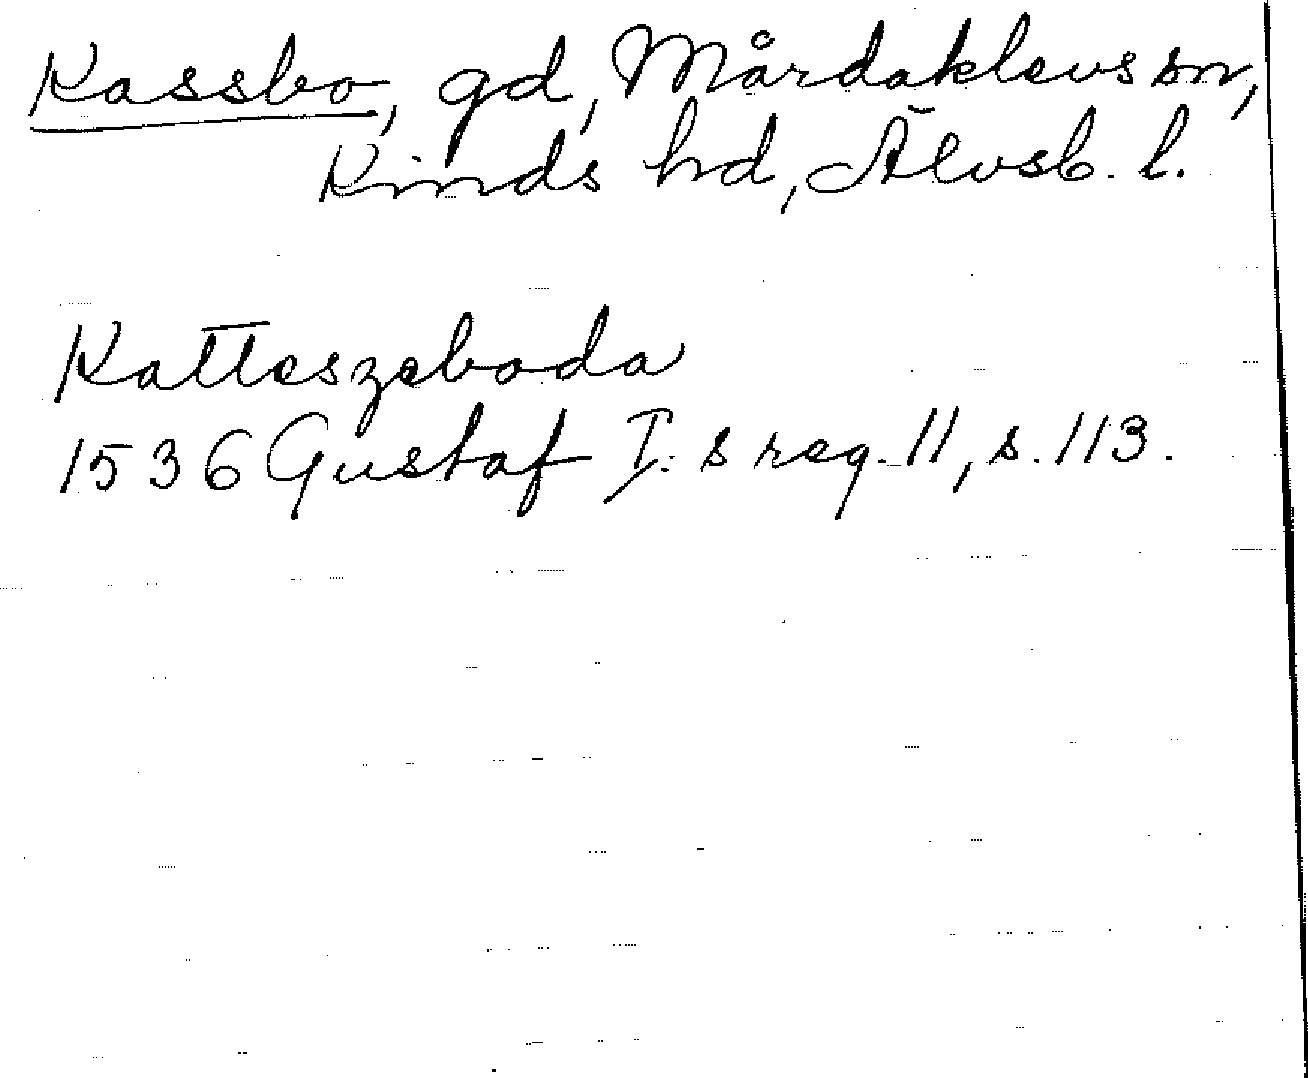 Kassbo, gd, Mårdaklevs sn,
Kinds hd, Älvsb. l.
Katteszeboda
1536 Gustaf I:s reg. 11, s. 113.